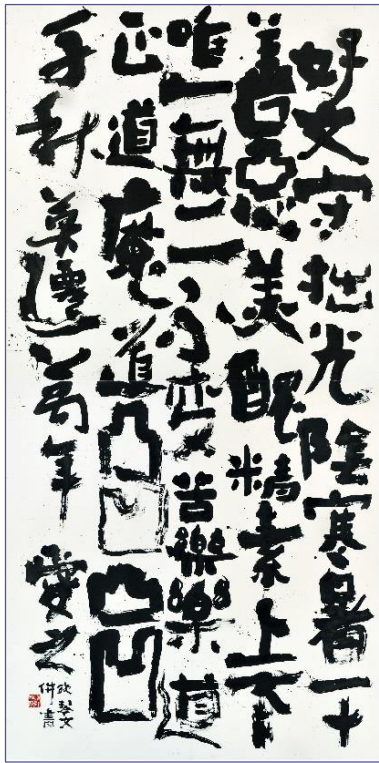 好文守拙光陰寒暑一十
善惡美醜精素上下
唯一無二變苦樂樂道
正道魔道凸凹凸凹
千秋萬年愛之
琴文
併書